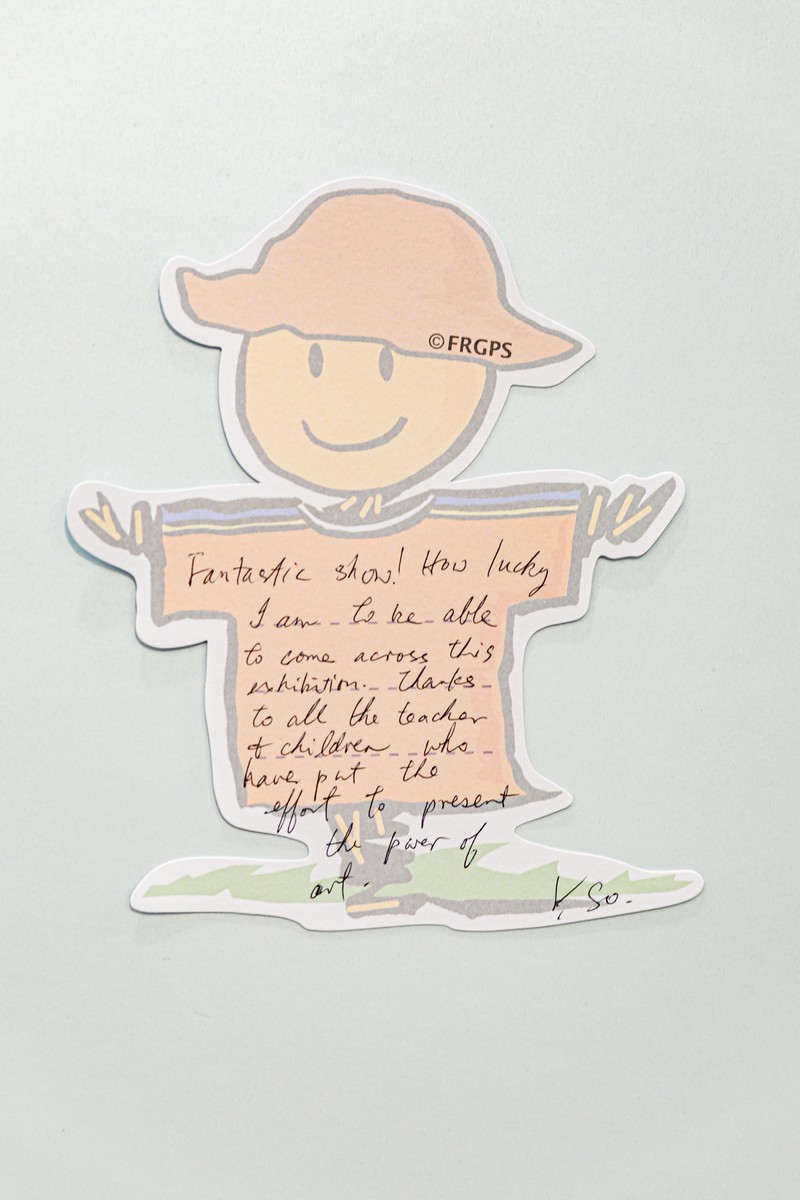 ©FRGPS
Fantastic show! How lucky
I am to be able
to come across this
exhibition. Thanks
to all the teacher
& children who
have put the
effort to present
the power of
art.
K So.